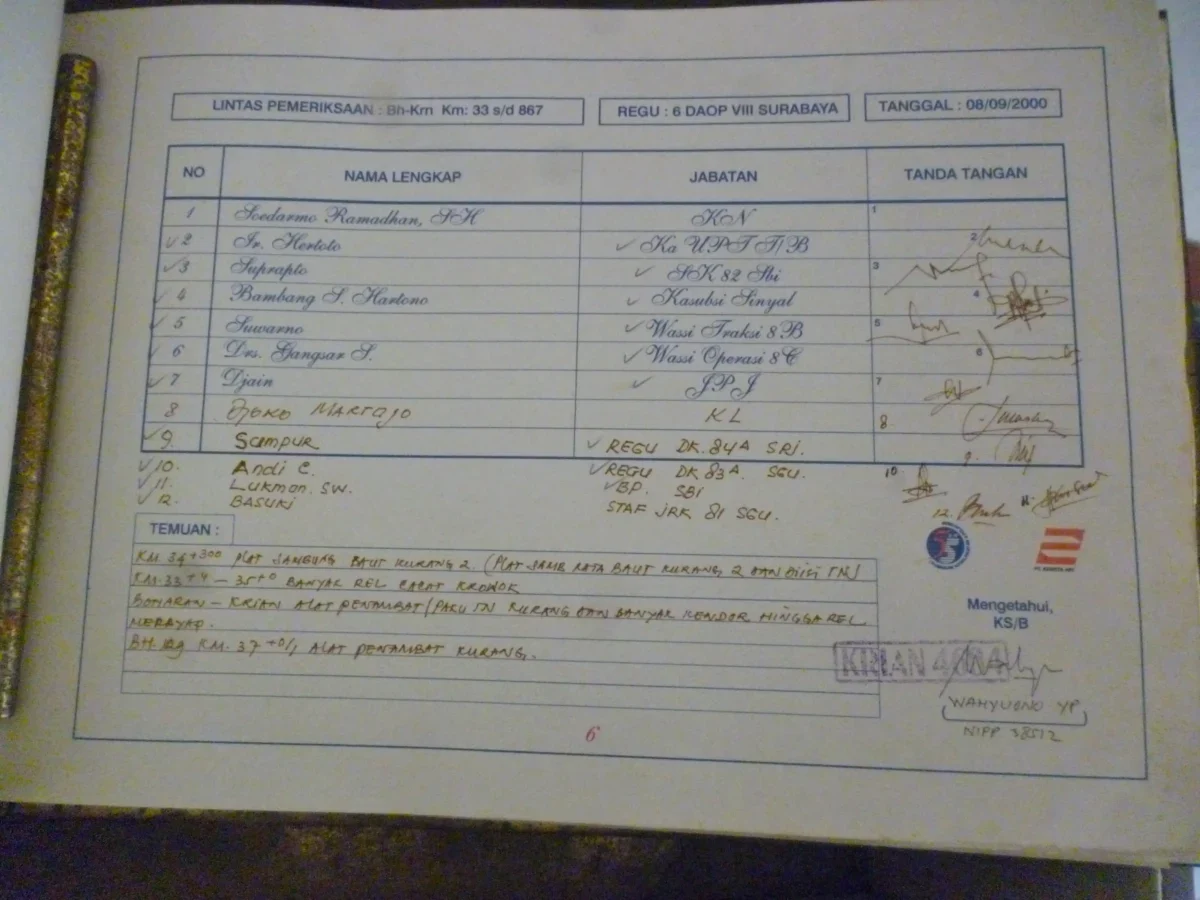 LINTAS PEMERIKSAAN : Bh-Krn Km: 33 s/d 867 REGU : 6 DAOP VIII SURABAYA TANGGAL : 08/09/2000
NO NAMA LENGKAP JABATAN TANDA TANGAN
1 Soedarmo Ramadhan, SH KN 1
2 Ir. Hertoto Ka UPT TI/B 2
3 Suprapto SK 82 Sbi 3
4 Bambang S. Hartono Kasubsi Sinyal 4
5 Suwarno Wassi Traksi 8B 5
6 Drs. Gangsar S. Wassi Operasi 8C 6
7 Djain JPJ 7
8 DJOKO MARTOJO KL 8.
9. SAMPUR REGU DK. 84A SRI. 9.
10. ANDI C. REGU DK. 83A SGU. 10.
11. LUKMAN. SW. BP. SBI 11.
12. BASUKI STAF JRK 81 SGU. 12.
TEMUAN :
KM. 34+300 PLAT SAMBUNG BAUT KURANG 2. (PLAT SAMB RATA BAUT KURANG 2 DAN DIISI TN)
KM. 33+4 - 35+0 BANYAK REL CACAT KROWOK
BOHARAN - KRIAN ALAT PENAMBAT/PAKU TN KURANG DAN BANYAK KENDOR HINGGA REL
MERAYAP.
BH. KM. 37 ALAT PENAMBAT KURANG.
Mengetahui,
KS/B
KRIAN
WAHYUONO YP
NIPP 38512
6